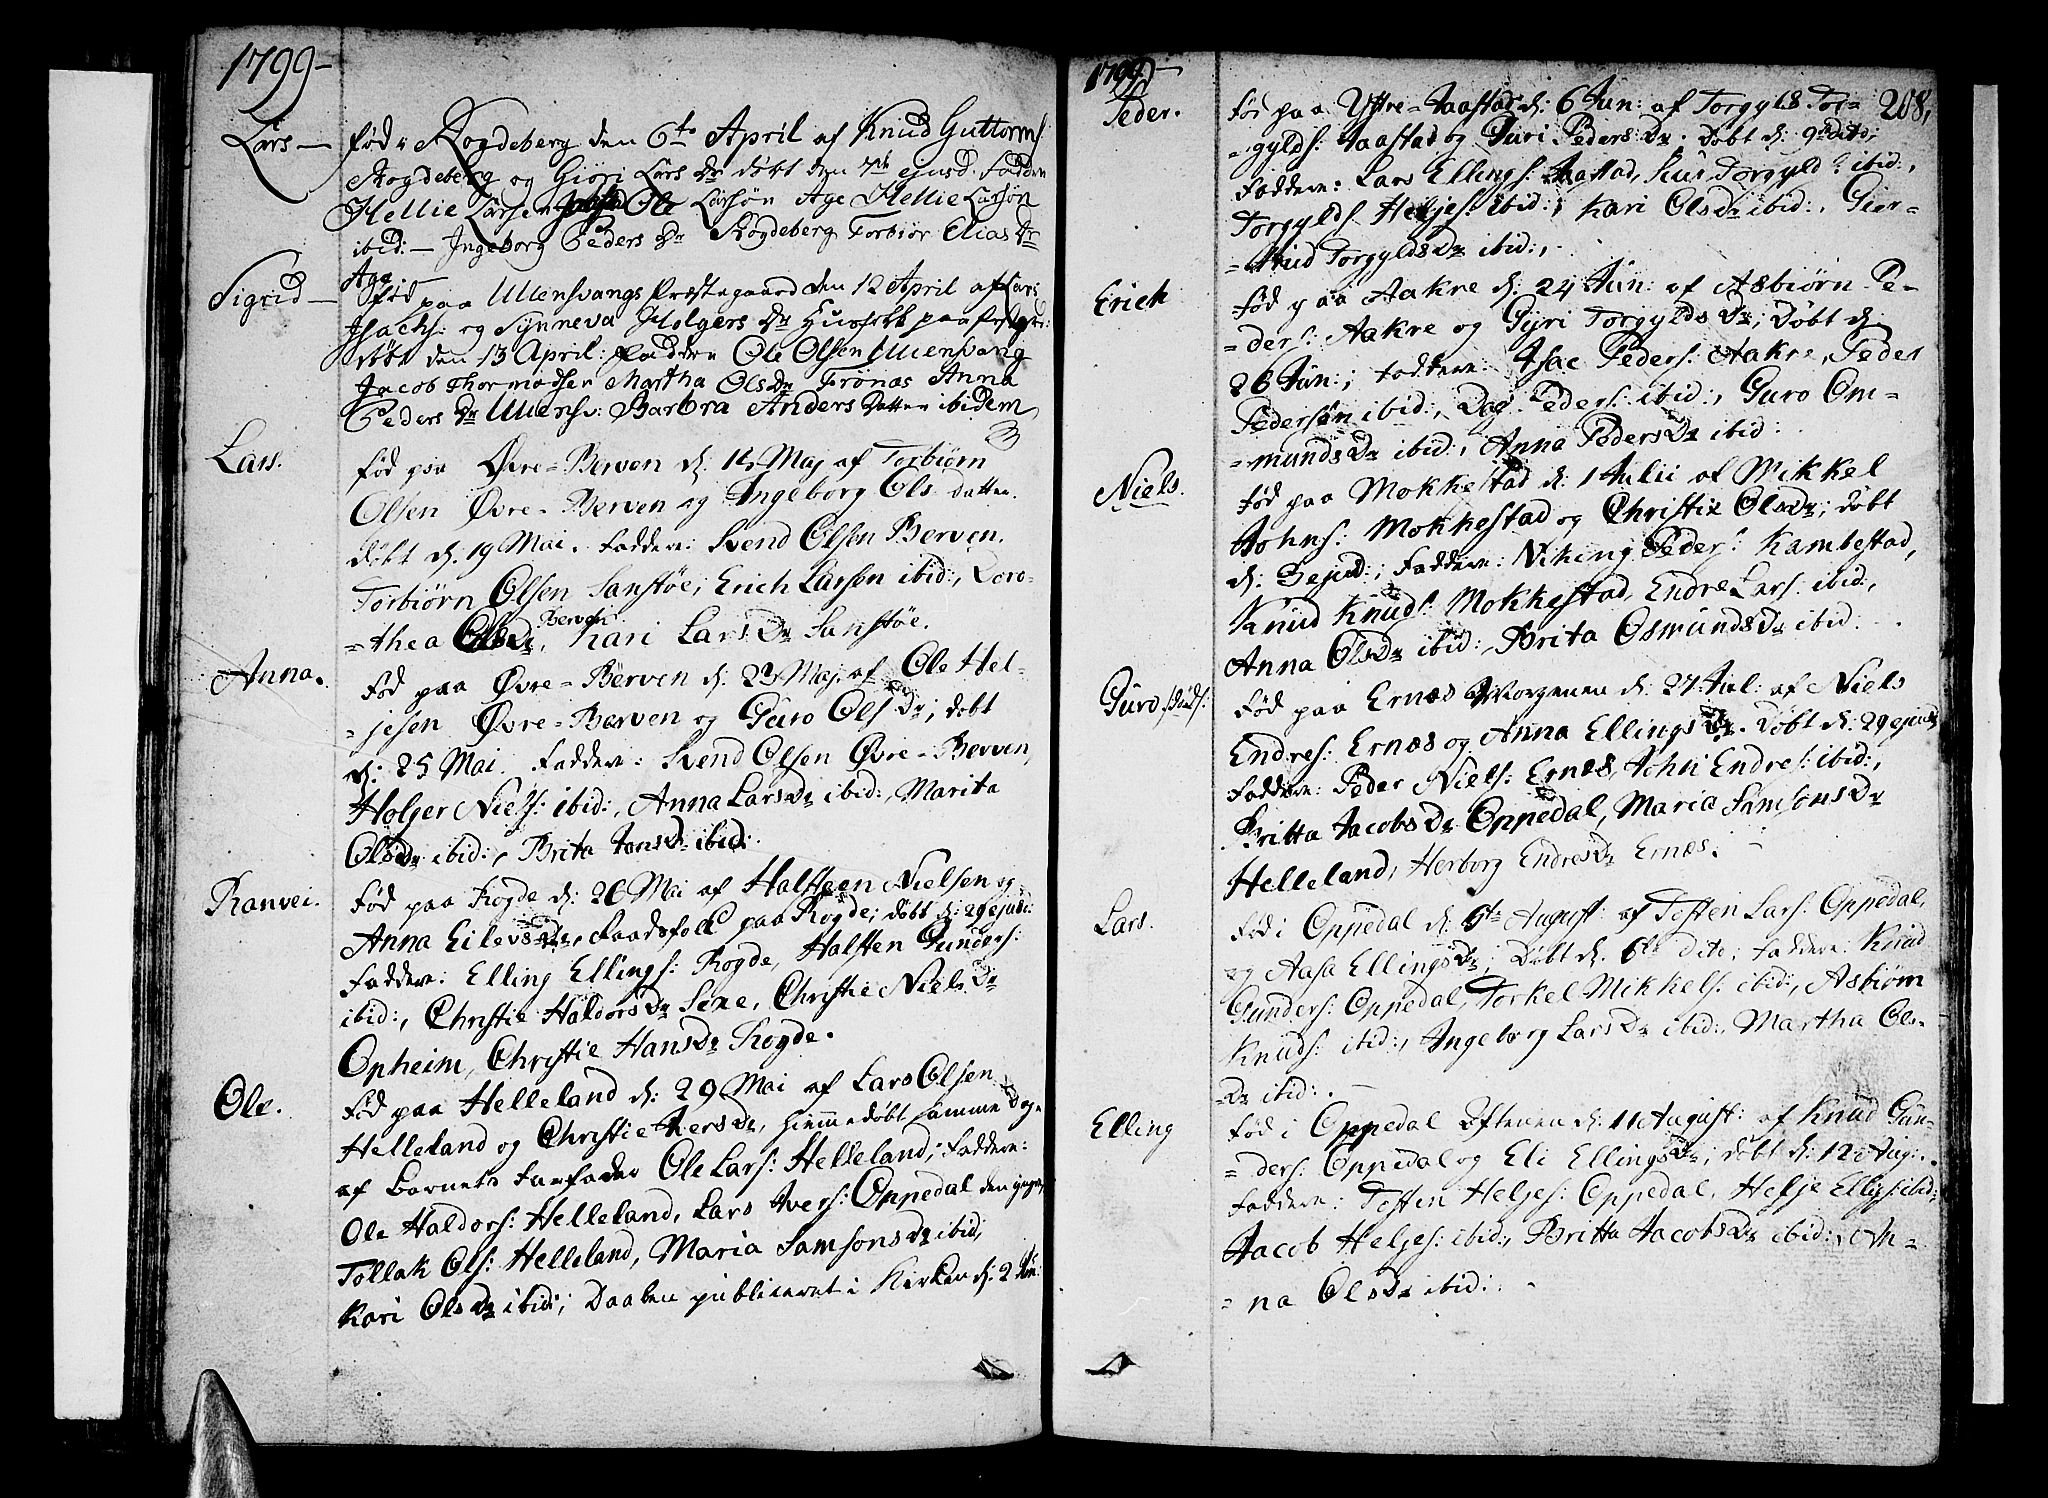 1799-
Lars - fød Rogdeberg den 6te April af Knud Guttorms
Rogdeberg og Giøri Lars Dr døbt den 7de ejusd. Fadder
Hellie Larsen Ole Larsøn Age Hellie Larsøn
ibid: - Ingeborg Peders Dr Rogdeberg Torbiør Elias Dr
Aga
Sigrid - fød paa Ullensvangs Præstegaard den 12 April af Lars
Isachs: og Synneva Holgers Dr Huusfolk paa
døbt den 13 April: Faddere Ole Olsen Ullensvang
Jacob Thormodsen Martha Ols Dr Frønæs Anna
Peders Dr Ullensv: Barbra Anders Datter ibidem
Lars. fød paa Øvre=Berven d: 14 Maj af Torbiørn
Olsen Øvre=Berven og Ingeborg Ols datter.
døbt d: 19 Mai. Faddere: Svend Olsen Berven.
Torbiørn Olsen Sanstøe; Erich Larsen ibid:, Doro=
Berven
=thea Ols Dr, Kari Lars Dr Sanstøe.
Anna. fød paa Øvre=Berven d: 23 Maj. af Ole Hel=
=jesen Øvre=Berven og Guro Ols Dr; døbt
d: 25 Mai. Faddere: Svend Olsen Øvre=Berven,
Holger Niels: ibid:, Anna Lars Dr ibid:, Marita
Ols Dr ibid:, Brita Jons Dr ibid:
Ranvei. fød paa Rogde d: 26 Mai af Halsteen Nielsen og
Anna Eilevs Dr, Raadsfolk paa Rogde; døbt d: 29 ejusd:
Faddere: Elling Ellings: Rogde, Halsten Gunders:
ibid:, Christie Haldors Dr Sexe, Christie Niels Dr
Opheim, Christie Hans Dr Rogde.
Ole. fød paa Helleland d: 29 Mai af Lars Olsen
Helleland og Christie Ivers Dr, hiemmedøbt samme Dag
af Barnets Farfader Ole Lars: Helleland; Faddere:
Ole Haldors: Helleland, Lars Ivers: Oppedal den yngre,
Tollak Ols: Helleland, Maria Samsons Dr ibid;
Kari Ols Dr ibid:; Daaben publiceret i Kirken d: 2 Jun:
1799. -
208,
Peder. fød paa Yttre=Jaastad d: 6 Jun: af Torgyls Tor=
=gylds: Jaastad og Guri Peders Dr. Døbt d: 9 dito;
Faddere: Lars Ellings: Jaastad, Siur Torgylds: ibid:,
Torgylds Heljes: ibid:, Kari Ols Dr ibid:, Gier=
=trud Torgylds Dr ibid:,
Erich fød paa Aakre d: 24 Jun: af Asbiørn Pe=
=ders: Aakre og Gyri Torgylds Dr; Døbt d:
26 Jun:; Faddere: Isac Peders: Aakre, Peder
Pedersøn ibid:, Dag Peders: ibid:, Guro Om=
=munds Dr ibid:, Anna Peders Dr ibid:
Niels. fød paa Mokkestad d: 1 Julii af Mikkel
Johns: Mokkestad og Christie Ols Dr; døbt
d: 3 ejusd:; Faddere: Viking Peders: Kambestad,
Knud Knuds: Mokkestad, Endre Lars: ibid:,
Anna Ols Dr ibid:, Brita Osmunds Dr ibid:
Guro fød paa Ernæs Morgenen d: 27 Jul: af Niels
Endres: Ernæs og Anna Ellings Dr. Døbt d: 29 ejusd:
Faddere: Peder Niels: Ernæs, John Endres: ibid:,
Britta Jacobs Dr Oppedal, Maria Samsons Dr
Helleland, Herborg Endres Dr Ernæs.
Lars. fød i Oppedal d: 5te August: af Tosten Lars: Oppedal,
og Aasa Ellings Dr; Døbt d: 6te dito; Faddere: Knud
Gunders: Oppedal, Torkel Mikkels: ibid:, Asbiørn
Knuds: ibid:, Ingeborg Lars Dr ibid:, Martha Ols=
=Dr ibid:.
Elling fød i Oppedal Aftenen d: 11 August: af Knud Gun=
=ders: Oppedal og Eli Ellings Dr; døbt d: 12 Aug:.
Faddere: Tosten Heljes: Oppedal, Helje Ellings: ibid:,
Jacob Heljes: ibid:, Britta Jacobs Dr ibid:, An=
=na Ols Dr ibid:.